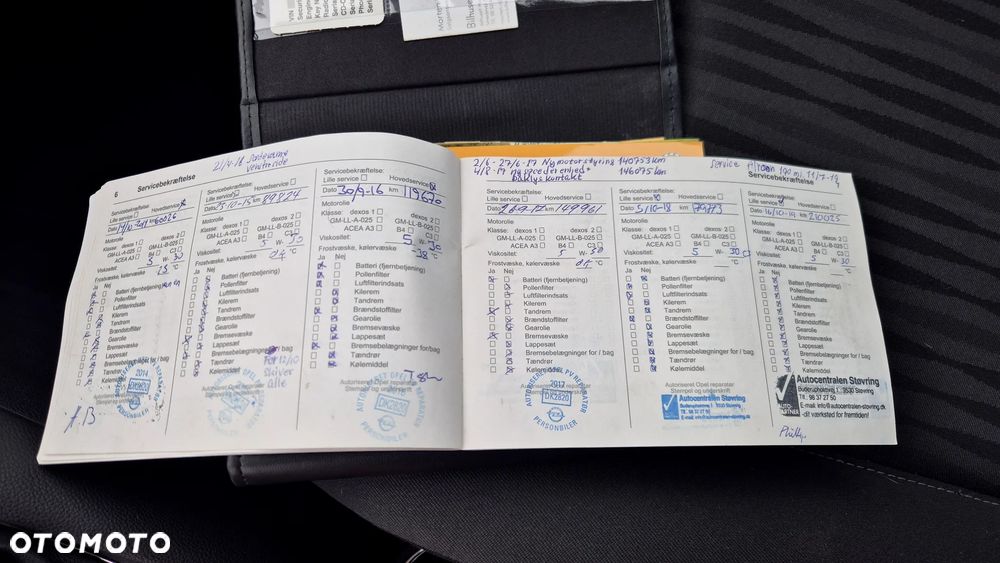 VIN
Security
Engine
Key N
Radio
CD-C
Seri
Phon
Seri
Morten
Bilhuse
21/4-16
2/6 - 27/6-17 Ny motorstyring 140753 km
4/8-17 ny speederenhed
Baklyskontakt
146075 km
Service
11/7-19
6
Servicebekræftelse
Lille service
Hovedservice
Dato
60026
km
Motorolie
Klasse: dexos 1 dexos 2
GM-LL-A-025 GM-LL-B-025
ACEA A3 B4 C3
Viskositet: 5 W- 30
Frostvæske, kølervæske °C
Ja Nej
Batteri (fjernbetjening)
Pollenfilter
Luftfilterindsats
Kilerem
Tandrem
Brændstoffilter
Gearolie
Bremsevæske
Lappesæt
Bremsebelægninger for / bag
Tændrør
Kølemiddel
2014
DK2820
A.B
Servicebekræftelse:
Lille service
Hovedservice
Dato 15-10-15 km 89824
Motorolie
Klasse: dexos 1 dexos 2
GM-LL-A-025 GM-LL-B-025
ACEA A3 B4 C3
Viskositet: 5 W- 30
Frostvæske, kølervæske °C
Ja Nej
Batteri (fjernbetjening)
Pollenfilter
Luftfilterindsats
Kilerem
Tandrem
Brændstoffilter
Gearolie
Bremsevæske
Lappesæt
Bremsebelægninger for / bag
Tændrør
Kølemiddel
Skiver
Alle
Servicebekræftelse:
Lille service
Hovedservice
Dato 30/9-16 km 119620
Motorolie
Klasse: dexos 1 dexos 2
GM-LL-A-025 GM-LL-B-025
ACEA A3 B4 C3
Viskositet: 5 W- 30
Frostvæske, kølervæske -38 °C
Ja Nej
Batteri (fjernbetjening)
Pollenfilter
Luftfilterindsats
Kilerem
Tandrem
Brændstoffilter
Gearolie
Bremsevæske
Lappesæt
Bremsebelægninger for / bag
Tændrør
Kølemiddel
Autoriseret Opel reparatør
Stempel og underskrift
DK2820
PERSONBILER
Servicebekræftelse:
Lille service
Hovedservice
Dato 26-9-17 km 149961
Motorolie
Klasse: dexos 1 dexos 2
GM-LL-A-025 GM-LL-B-025
ACEA A3 B4 C3
Viskositet: 5 W- 30
Frostvæske, kølervæske °C
Ja Nej
Batteri (fjernbetjening)
Pollenfilter
Luftfilterindsats
Kilerem
Tandrem
Brændstoffilter
Gearolie
Bremsevæske
Lappesæt
Bremsebelægninger for / bag
Tændrør
Kølemiddel
Autoriseret Opel reparatør
Stempel og underskrift
2017
DK2820
PERSONBILER
Servicebekræftelse:
Lille service
Hovedservice
Dato 5/10-18 km
Motorolie
Klasse: dexos 1 dexos 2
GM-LL-A-025 GM-LL-B-025
ACEA A3 B4 C3
Viskositet: 5 W- 30
Frostvæske, kølervæske °C
Ja Nej
Batteri (fjernbetjening)
Pollenfilter
Luftfilterindsats
Kilerem
Tandrem
Brændstoffilter
Gearolie
Bremsevæske
Lappesæt
Bremsebelægninger for / bag
Tændrør
Kølemiddel
Autoriseret Opel reparatør
Stempel og underskrift
Autocentralen Støvring
Tlf.: 98 37 27 50
E-mail: info@autocentralen-stovring.dk
7
Servicebekræftelse
Lille service
Hovedservice
Dato 16/10-19 km 210025
Motorolie
Klasse: dexos 1 dexos 2
GM-LL-A-025 GM-LL-B-025
ACEA A3 B4 C3
Viskositet: 5 W- 30
Frostvæske, kølervæske °C
Ja Nej
Batteri (fjernbetjening)
Pollenfilter
Luftfilterindsats
Kilerem
Tandrem
Brændstoffilter
Gearolie
Bremsevæske
Lappesæt
Bremsebelægninger for / bag
Tændrør
Kølemiddel
AUTO
PARTNER
Autocentralen Støvring
Tlf.: 98 37 27 50
E-mail: info@autocentralen-stovring.dk
-dit værksted for fremtiden!
OTOMOTO